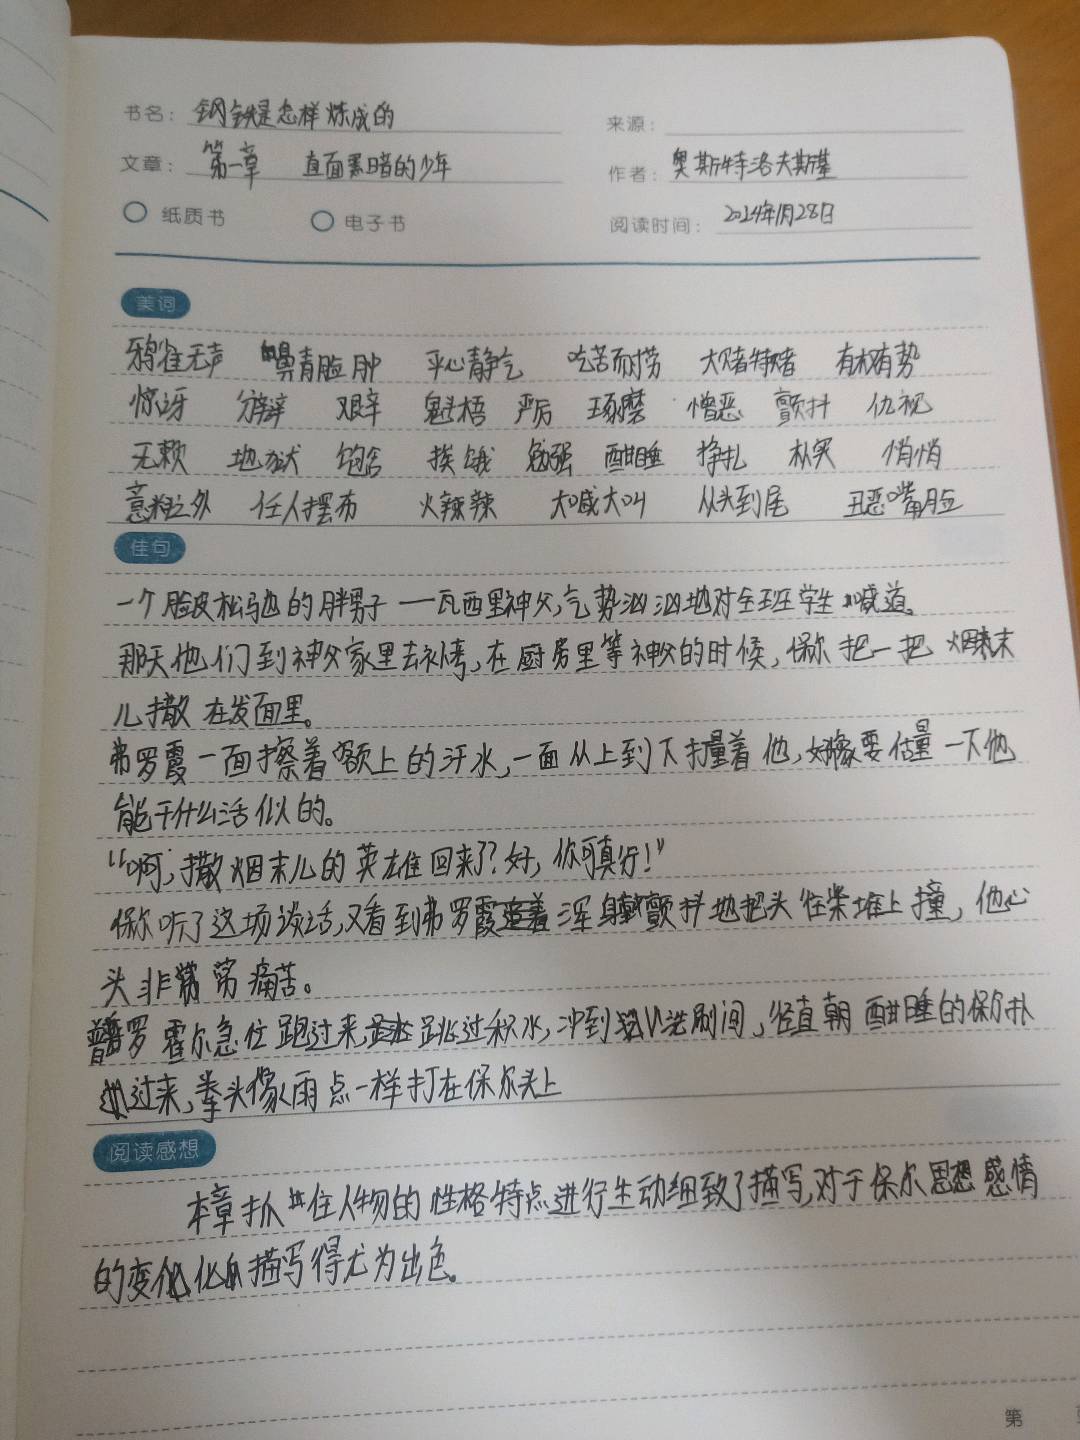 书名：钢铁是怎样炼成的
来源：
文章：第一章 直面黑暗的少年
作者：奥斯特洛夫斯基
纸质书 电子书
阅读时间：2024年1月28日
美词
鸦雀无声 鼻青脸肿 平心静气 吃苦而耐劳 大赌特赌 有权有势
惊讶 分辩 艰辛 魁梧 严厉 琢磨 憎恶 颤抖 仇视
无赖 地狱 饱含 挨饿 勉强 酣睡 挣扎 悄悄
意料之外 任人摆布 火辣辣 大喊大叫 从头到尾 丑恶嘴脸
佳句
一个脸皮松弛的胖男子——瓦西里神父，气势汹汹地对全班学生喊道。
那天他们到神父家里去补考，在厨房里等神父的时候，保尔把一把烟末
儿撒在发面里。
弗罗霞一面擦着额上的汗水，一面从上到下打量着他，好像要估量一下他
能干什么活似的。
“啊，撒烟末儿的英雄回来了？好，你可真行！”
保尔听了这场谈话，又看到弗罗霞浑身颤抖地把头往柴堆上撞，他心
头非常痛苦。
普罗霍尔急忙跑过来，跳过积水，冲到洗刷间，径直朝酣睡的保尔扑
过来，拳头像雨点一样打在保尔头上
阅读感想
本章抓住人物的性格特点进行生动细致了描写，对于保尔思想感情
的变化描写得尤为出色。
第